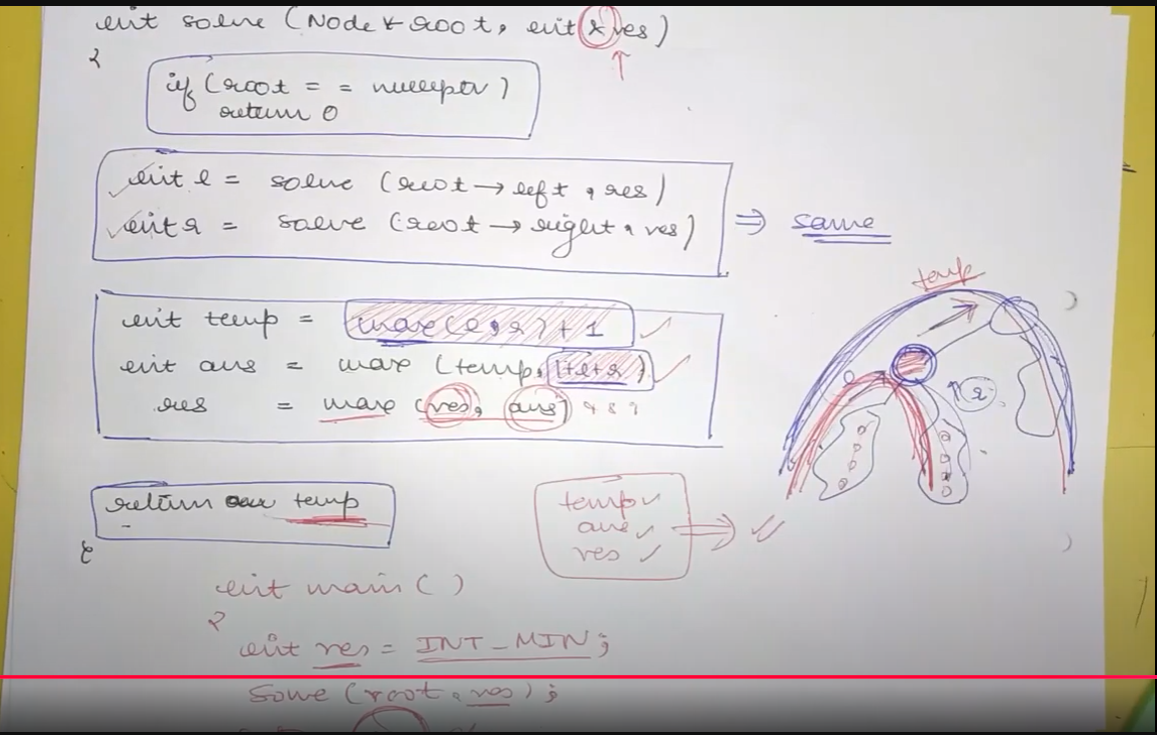 int solve (Node * root, int & res)
{
if (root == nullptr)
return 0
int l = solve (root → left, res)
int r = solve (root → right, res)
⇒ same
int temp = max(l, r) + 1
int ans = max (temp, 1+l+r)
res = max (res, ans)
return temp
}
temp
ans
res
temp
l
r
int main ()
{
int res = INT_MIN;
solve (root, res);